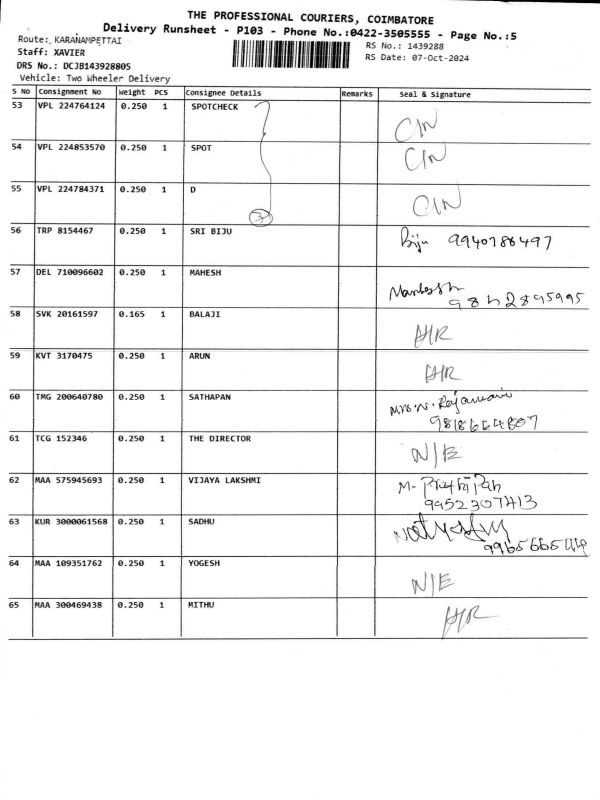 THE PROFESSIONAL COURIERS, COIMBATORE
Delivery Runsheet - P103 - Phone No.:0422-3505555 - Page No.:5
Route: KARANAMPETTAI
RS No.: 1439288
Staff: XAVIER
RS Date: 07-Oct-2024
DRS No.: DCJB143928805
Vehicle: Two Wheeler Delivery
S No Consignment No Weight PCS Consignee Details Remarks Seal & Signature
53 VPL 224764124 0.250 1 SPOTCHECK C/N
54 VPL 224853570 0.250 1 SPOT C/N
55 VPL 224784371 0.250 1 D C/N
3
56 TRP 8154467 0.250 1 SRI BIJU Biju 9940788497
57 DEL 710096602 0.250 1 MAHESH
58 SVK 20161597 0.165 1 BALAJI
59 KVT 3170475 0.250 1 ARUN
60 TMG 200640780 0.250 1 SATHAPAN
61 TCG 152346 0.250 1 THE DIRECTOR N/E
62 MAA 575945693 0.250 1 VIJAYA LAKSHMI
9952307413
63 KUR 3000061568 0.250 1 SADHU
64 MAA 109351762 0.250 1 YOGESH N/E
65 MAA 300469438 0.250 1 MITHU